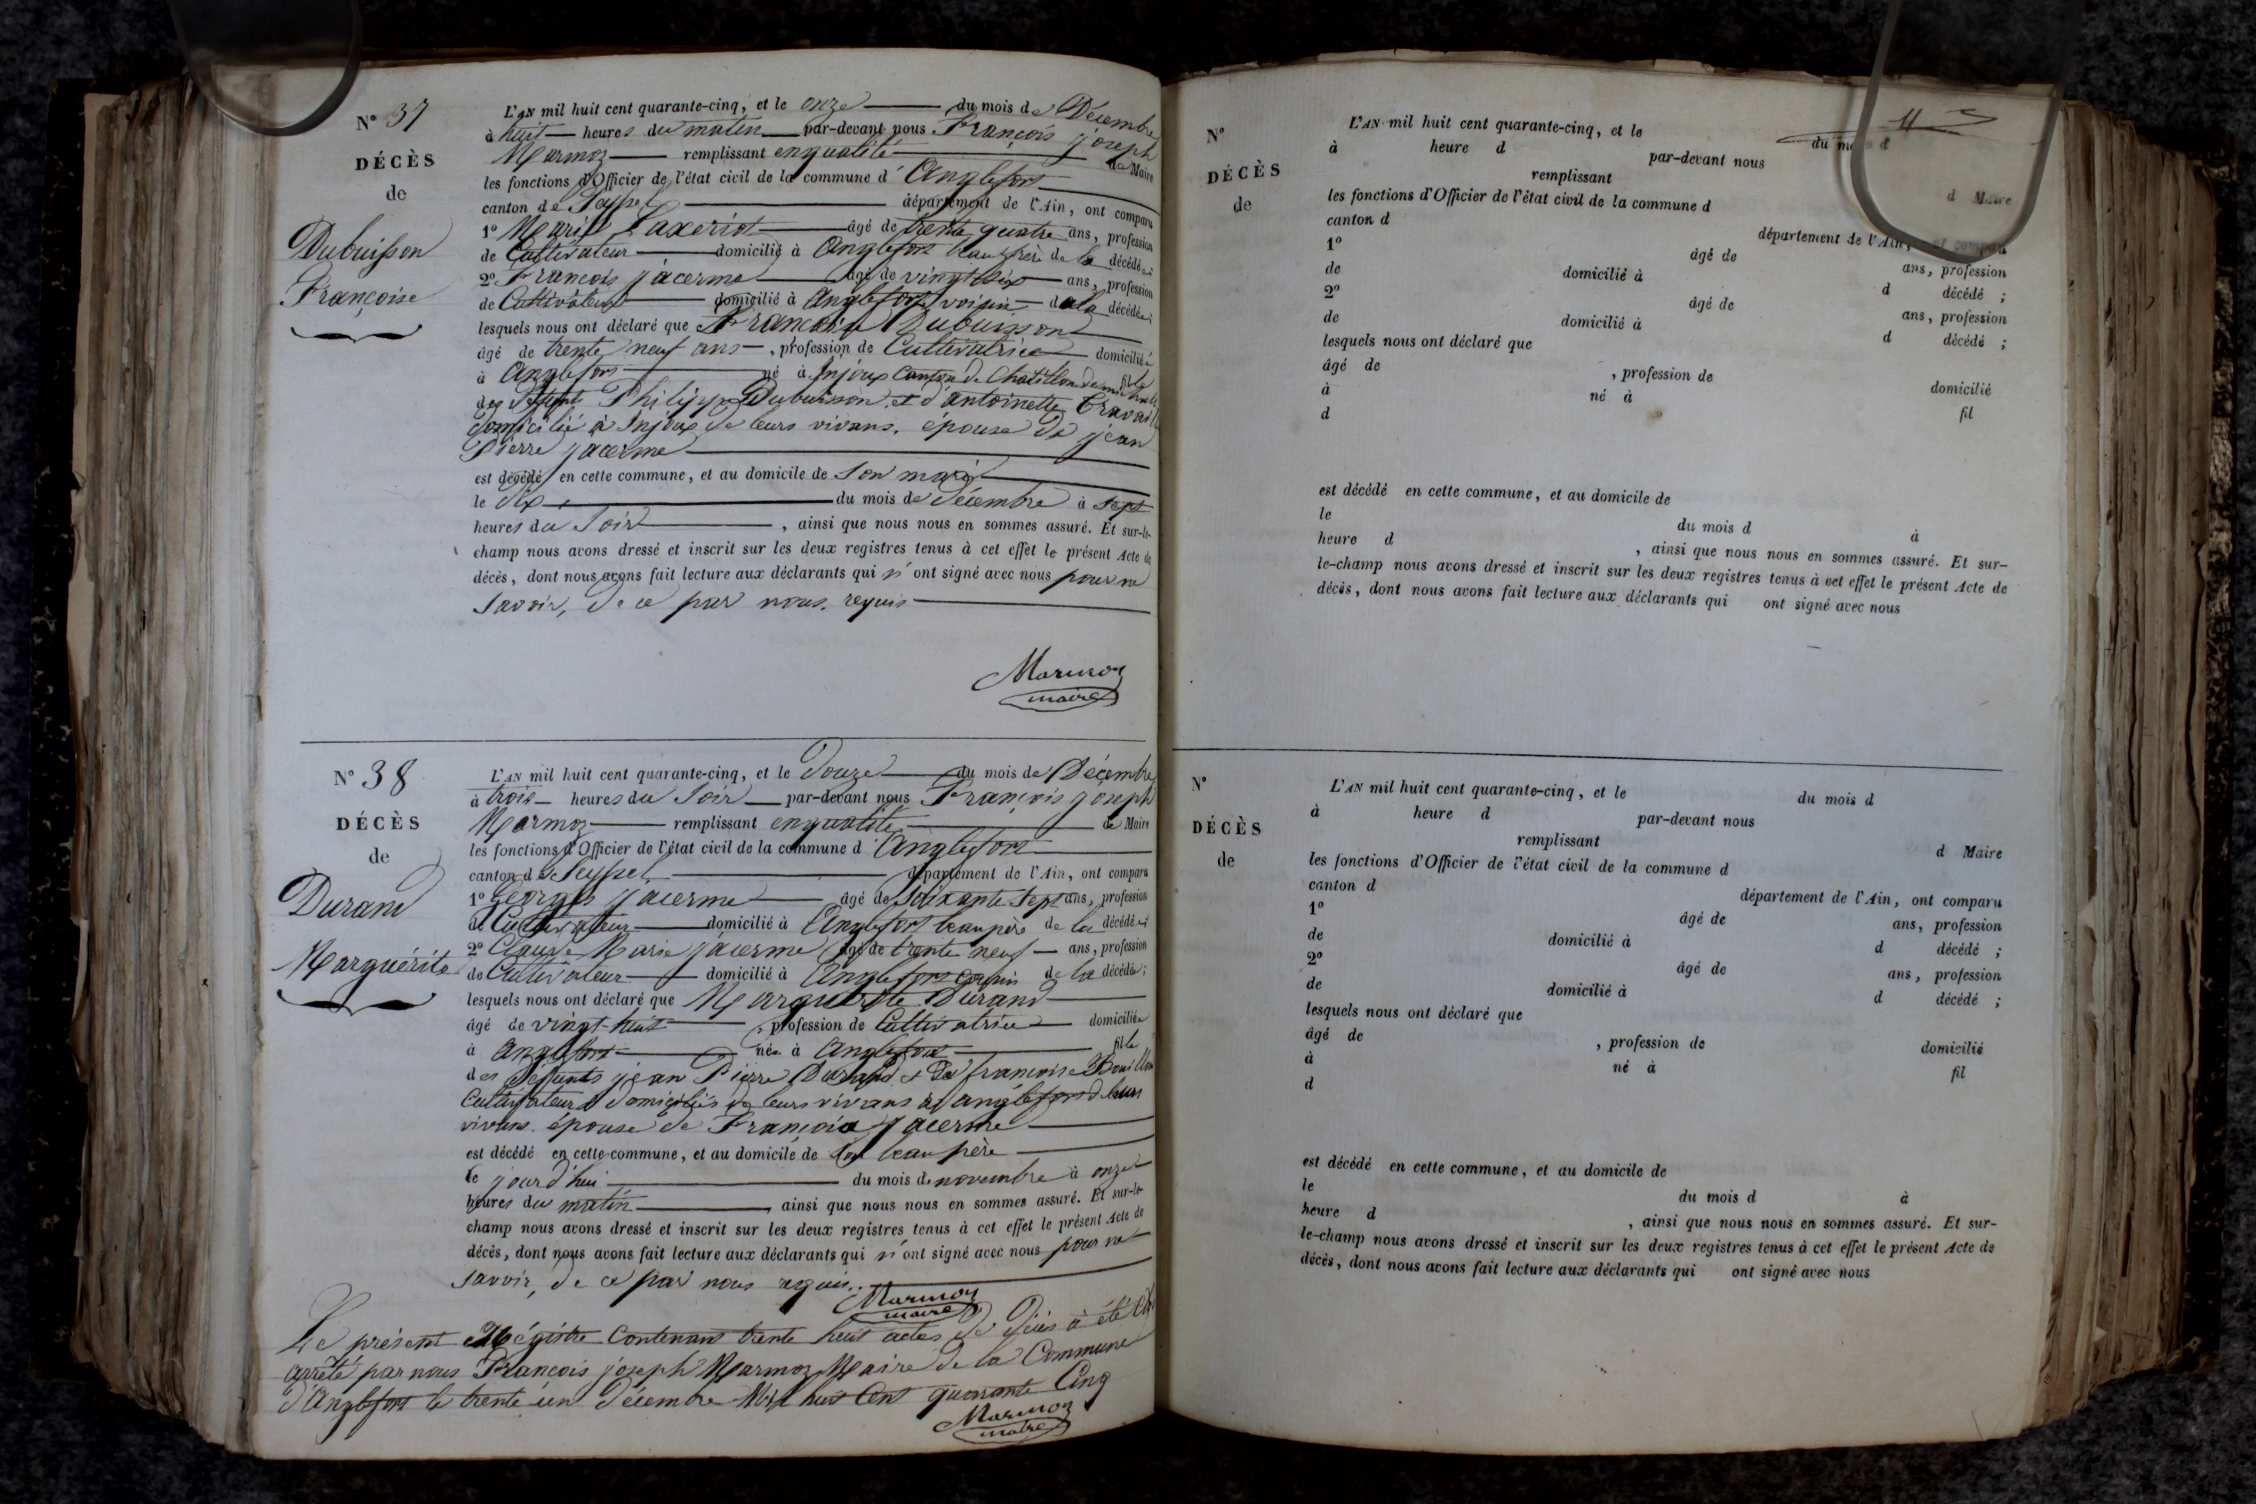 N° 37
DÉCÈS
de
Dubuisson
Françoise
L'AN mil huit cent quarante-cinq, et le onze du mois de Décembre
à huit heures du matin par-devant nous François joseph
Marmoz remplissant en qualité de Maire
les fonctions d'Officier de l'état civil de la commune d' Anglefort
canton de Seyssel département de l'Ain, ont comparu
1° Marie Laxeriot âgé de trente quatre ans, profession
de Cultivateur domicilié à Anglefort beau frère de la décédée;
2° François jacerme âgé de vingt six ans, profession
de Cultivateur domicilié à Anglefort voisin de la décédée;
lesquels nous ont déclaré que Françoise Dubuisson
âgé de trente neuf ans, profession de Cultivatrice domiciliée
à Anglefort né à Injoux Canton de Chatillon de michaille fille
des Philippe Dubuisson et d'antoinette
domicilié à Injoux de leurs vivans, épouse de jean
Pierre jacerme
est décédé en cette commune, et au domicile de son mari
le dix du mois de Décembre à sept
heures du Soir, ainsi que nous nous en sommes assuré. Et sur-le-
champ nous avons dressé et inscrit sur les deux registres tenus à cet effet le présent Acte de
décès, dont nous avons fait lecture aux déclarants qui n'ont signé avec nous pour ne
savoir, de ce par nous requis
Marmoz
maire
N° 38
DÉCÈS
de
Durand
Marguérite
L'AN mil huit cent quarante-cinq, et le Douze du mois de Décembre
à trois heures du Soir par-devant nous François joseph
Marmoz remplissant en qualité de Maire
les fonctions d'Officier de l'état civil de la commune d' Anglefort
canton de Seyssel département de l'Ain, ont comparu
1° Georges jacerme âgé de Soixante Sept ans, profession
de Cultivateur domicilié à Anglefort beau père de la décédée;
2° Claude Marie jacerme âgé de trente neuf ans, profession
de Cultivateur domicilié à Anglefort cousin de la décédée;
lesquels nous ont déclaré que Marguerite Durand
âgé de vingt-huit, profession de Cultivatrice domiciliée
à Anglefort née à Anglefort fille
des Défunts jean Pierre Durand et de françoise Bouillon
Cultivateurs domiciliés de leurs vivans à anglefort d leurs
vivans épouse de François jacerme
est décédé en cette commune, et au domicile de son beau père
le jourd'hui du mois de novembre à onze
heures du matin, ainsi que nous nous en sommes assuré. Et sur-le-
champ nous avons dressé et inscrit sur les deux registres tenus à cet effet le présent Acte de
décès, dont nous avons fait lecture aux déclarants qui n'ont signé avec nous pour ne
savoir, de ce par nous requis.
Marmoz
maire
Le présent Régistre Contenant trente huit actes de Décès à été
arrêté par nous François joseph Marmoz Maire de la Commune
d'Anglefort le trente un Décembre Mil huit Cent quarante Cinq
Marmoz
maire
11
N°
DÉCÈS
de
L'AN mil huit cent quarante-cinq, et le du mois d
à heure d par-devant nous
remplissant d Maire
les fonctions d'Officier de l'état civil de la commune d
canton d département de l'Ain, ont comparu
1° âgé de ans, profession
de domicilié à d décédé ;
2° âgé de ans, profession
de domicilié à d décédé ;
lesquels nous ont déclaré que
âgé de , profession de domicilié
à né à fil
d
est décédé en cette commune, et au domicile de
le du mois d à
heure d , ainsi que nous nous en sommes assuré. Et sur-
le-champ nous avons dressé et inscrit sur les deux registres tenus à cet effet le présent Acte de
décès, dont nous avons fait lecture aux déclarants qui ont signé avec nous
N°
DÉCÈS
de
L'AN mil huit cent quarante-cinq, et le du mois d
à heure d par-devant nous
remplissant d Maire
les fonctions d'Officier de l'état civil de la commune d
canton d département de l'Ain, ont comparu
1° âgé de ans, profession
de domicilié à d décédé ;
2° âgé de ans, profession
de domicilié à d décédé ;
lesquels nous ont déclaré que
âgé de , profession de domicilié
à né à fil
d
est décédé en cette commune, et au domicile de
le du mois d à
heure d , ainsi que nous nous en sommes assuré. Et sur-
le-champ nous avons dressé et inscrit sur les deux registres tenus à cet effet le présent Acte de
décès, dont nous avons fait lecture aux déclarants qui ont signé avec nous